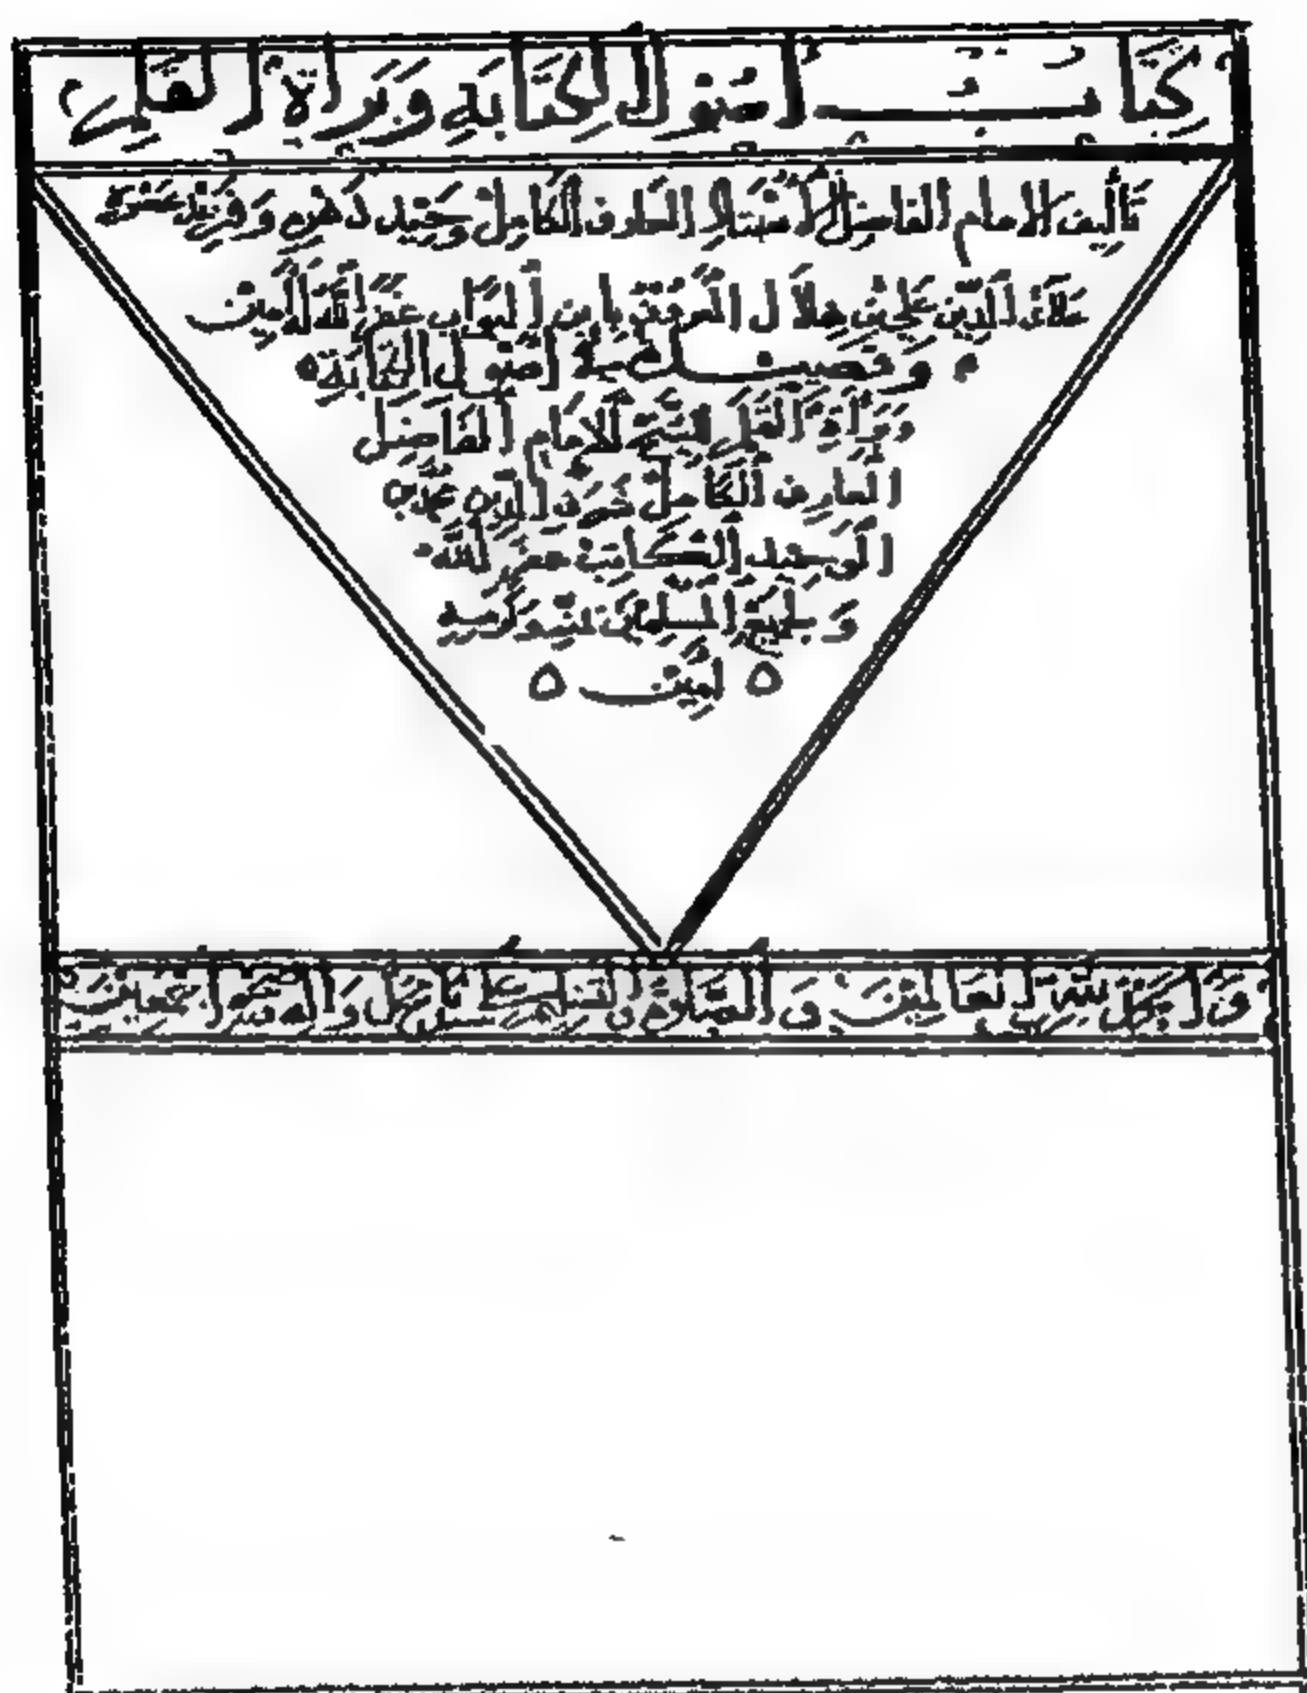 كِتَاب أُصُول الكِتَابَه وَبَرَاة القَلَم
تَأليف الامام الفاضل الأستاذ العارف الكامل وَحيد دَهره وَفريد عَصره
علاء الدّين علي بن هلال المعروف بابن البوّاب غفر الله له امين
وَ في اصُول الكتابَة
وَبَراة القَلَم للشيخ الامَام الفَاضِل
العَارف الكَامل شرف الدّين محمد بن
الوَحيد الكاتب غفر الله
وَلجميع المسلمين بمنه وَكرمه
امين
وَالحمد لله رَب العَالمين وَالصّلاة وَالسلام على محمد وَاله اجمعين